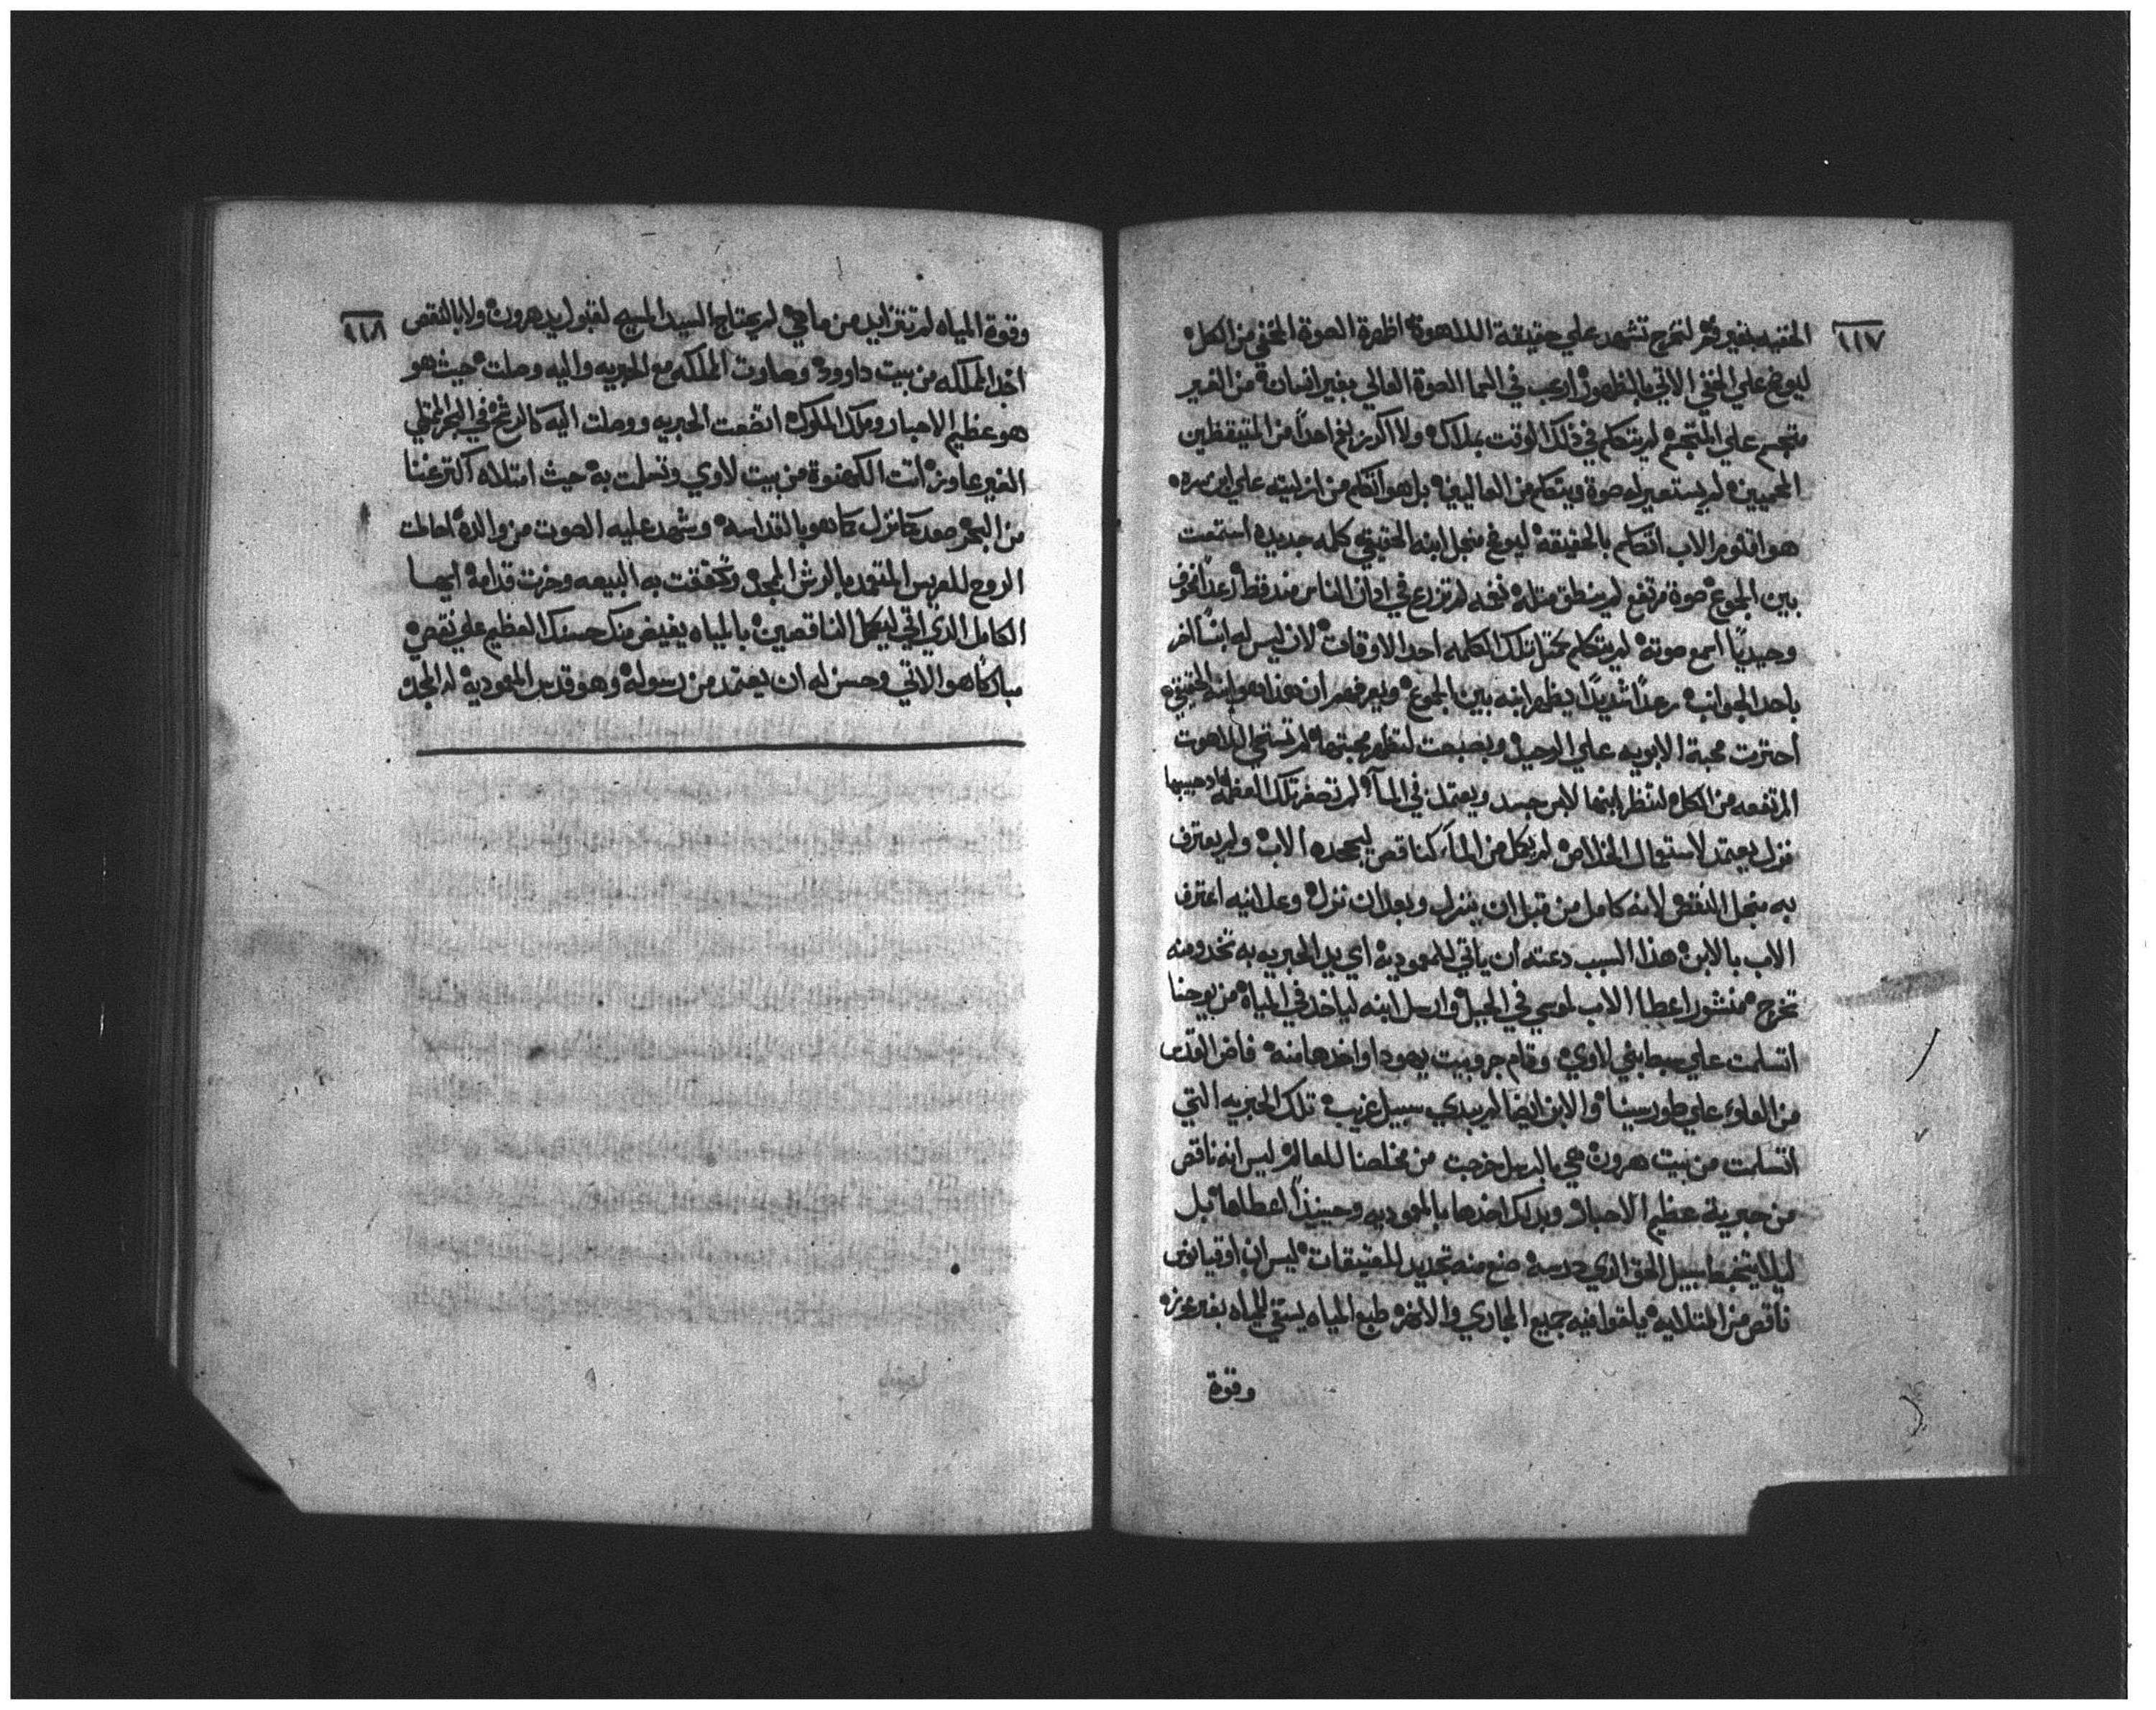 ١١٧
بغير فم لتخرج تشهد علي حقيقة اللاهوة اظهرة الصوة المخفي من الكل
ليوضح علي الخفي الاتي بالظهور ارعب في السما الصوة العالي بغير انسان من الغير
متجسم علي المتجسم لم يتكلم في ذلك الوقت بملاك ولا اكرز بفم احداً من المتيقظين
لم يستعير له صوة ويتكلم من العاليين بل هو اتكلم من ازليته علي ابن سره
هو اقنوم الاب اتكلم بالحقيقه ليوضح منجل ابنه الحقيقي كلمه جديده استمعت
بين الجموع صوة مرتفع لم ينطق مثله نغمه لم تزرع في ادان الناس منذ قط رعداً مخوف
وحيديًا اسمع صوته لم يتكلم بمثل تلك الكلمه احد الاوقات لان ليس له ابناً اخر
باحد الجوانب رعداً شديداً يظهر ابنه بين الجموع ويعرفهم ان هذا هو ابنه الحقيقي
احتربت محبة الابويه علي الوحيد لتظهر محبتها لم تستحي اللاهوت
المرتفعه من الكل لتنظر ابنها لابس جسد ويعتمد في المآ لم تصغر تلك العظمه
نزل يعتمد لاستعمال الخلاص لم يكمل من المآ كناقص ليجحده الاب ولم يعترف
به منجل النقص لانه كامل من قبل ان ينزل وبعد ان نزل وعلانيه اعترف
الاب بالابن هذا السبب دعته أن ياتي للمعمودية اي يد الحبريه به تحد ومنه
تخرج منشور اعطا الاب لموسي في الجبل وارسل ابنه لياخد في المياه من يوحنا
اتسلمت علي سبط بني لاوي وقام جرو بيت يهودا واخدها منه فاض القدس
من العلو علي طور سينا والابن ايضا لم يبدي سبيل غريب تلك الحبريه التي
اتسلمت من بيت هرون هي بالرسل خرجت من مخلصنا للعالم ليس انه ناقص
من حبرية عظيم الاحبار وبدلك اخدها بالمعموديه وحينيذاً اعطاها بل
سبيل الحق الذي درسه صنع منه تجديد للعتيقات ليس ان اوقيانوس
ناقص من المتلايه يلقوا فيه جميع المجاري والانهر طبع المياه يستقي المياه بغير عوزه
وقوة
١١٨
وقوة المياه لم تتزايد من ما هي لم يحتاج السيد المسيح لقبول يد هرون ولا بالنقص
اخد المملكه من بيت داوود وصارت المملكه مع الحبريه واليه وصلت حيث هو
هو عظيم الاحبار وملك الملوك اتضعت الحبريه ووصلت اليه كالرشح في البحر
الغير عاوز اتت الكهنوة من بيت لاوي وتحلت به حيث امتلاه اكتر غنا
من البحر صعد كما نزل كما هو بالقداسه وشهد عليه الصوت من والده احالت
الروح للعريس المتعمد بالرش المجد وتحققت به البيعه وخرت قدامه ايها
الكامل الذي اتي ليكمل الناقصين بالمياه يفيض منك حسنك العظيم علي نقصي
مباركًا هو الاتي وحسن له ان يعتمد من رسوله وهو قدس المعودية له المجد